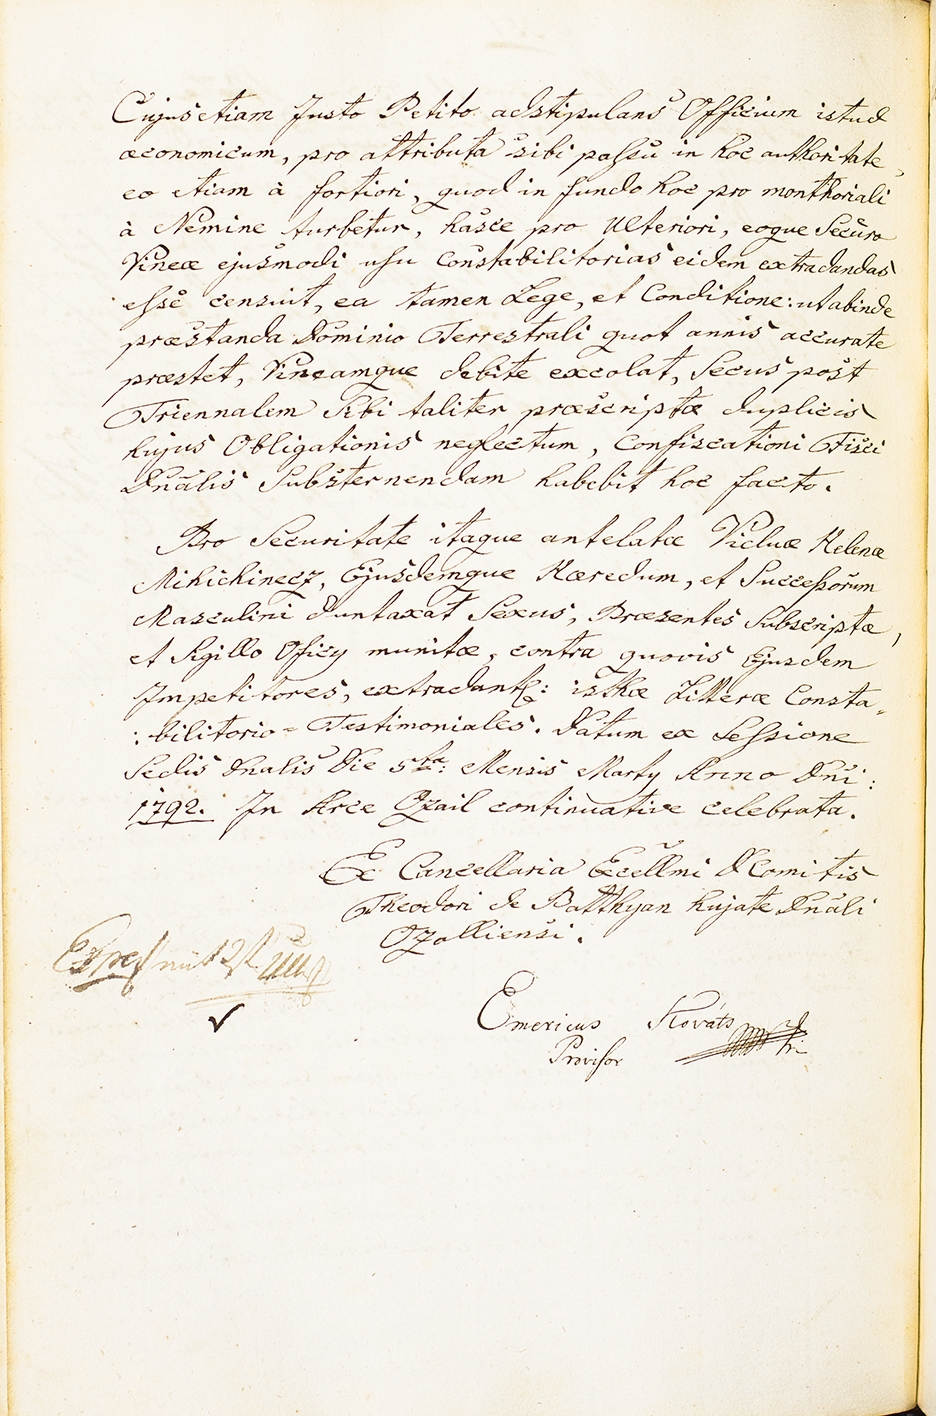 Cujus etiam Justo Petito adstipulans Officium istud
œconomicum, pro attributa sibi passu in hoc authoritate,
eo etiam à fortiori, quod in fundo hoc promonthoriali
à Nemine turbetur, hasce pro Ulteriori, eoque Securo
Vineæ ejusmodi usu Constabilitorias eidem extradandas
esse censuit, ea tamen Lege, et Conditione: ut abinde
præstanda Dominio Terrestrali quot annis accurate
præstet, Vineamque debite excolat, Secus post
Triennalem Sibi taliter præscriptæ duplicis
hujus Obligationis neglectum, Confiscationi Fisci
Dnalis Substernendam habebit hoc facto.
Pro Securitate itaque antelatæ Viduæ Helenæ
Mihichinecz, Ejusdemque Hæredum, et Successorum
Masculini duntaxat Sexus, Præsentes Subscriptæ,
et Sigillo Officy munitæ, contra quovis Ejusdem
Impetitores, extradant: isthæ Litteræ Consta-
: bilitorio = Testimoniales. Datum ex Sessione
Sedis Dnalis Die 5ta: Mensis Marty Anno Dni:
1792. In Arce Ozail continuative celebrata.
Ex Cancellaria Excellmi D Comitis
Theodori de Batthyan hujate Dnali
Ozalliensi.
Emericus Kováts
Provisor